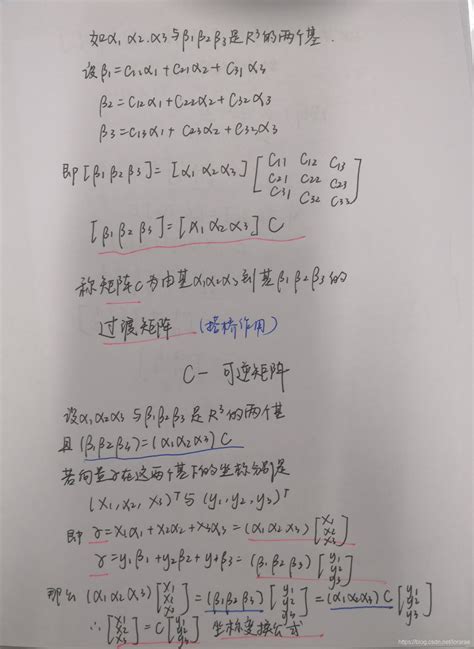 如α₁ α₂ α₃与β₁β₂β₃是R³的两个基.
设β₁=C₁₁α₁+C₂₁α₂+C₃₁α₃
β₂=C₁₂α₁+C₂₂α₂+C₃₂α₃
β₃=C₁₃α₁+C₂₃α₂+C₃₃α₃
即[β₁β₂β₃]=[α₁α₂α₃][C₁₁ C₁₂ C₁₃
C₂₁ C₂₂ C₂₃
C₃₁ C₃₂ C₃₃]
[β₁β₂β₃]=[α₁α₂α₃]C
称矩阵C为由基α₁α₂α₃到基β₁β₂β₃的
过渡矩阵 (搭桥作用)
C — 可逆矩阵
设α₁α₂α₃与β₁β₂β₃是R³的两个基
且(β₁β₂β₃)=(α₁α₂α₃)C
若向量γ在这两个基下的坐标分别是
(X₁, X₂, X₃)ᵀ与(y₁, y₂, y₃)ᵀ
即 γ=X₁α₁+X₂α₂+X₃α₃=(α₁α₂α₃)[X₁ X₂ X₃]
γ=y₁β₁+y₂β₂+y₃β₃=(β₁β₂β₃)[y₁ y₂ y₃]
那么(α₁α₂α₃)[X₁ X₂ X₃]=(β₁β₂β₃)[y₁ y₂ y₃]=(α₁α₂α₃)C[y₁ y₂ y₃]
∴[X₁ X₂ X₃]=C[y₁ y₂ y₃] 坐标变换公式